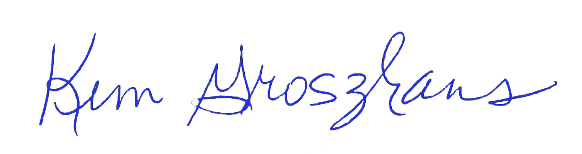 Kim Groszhans